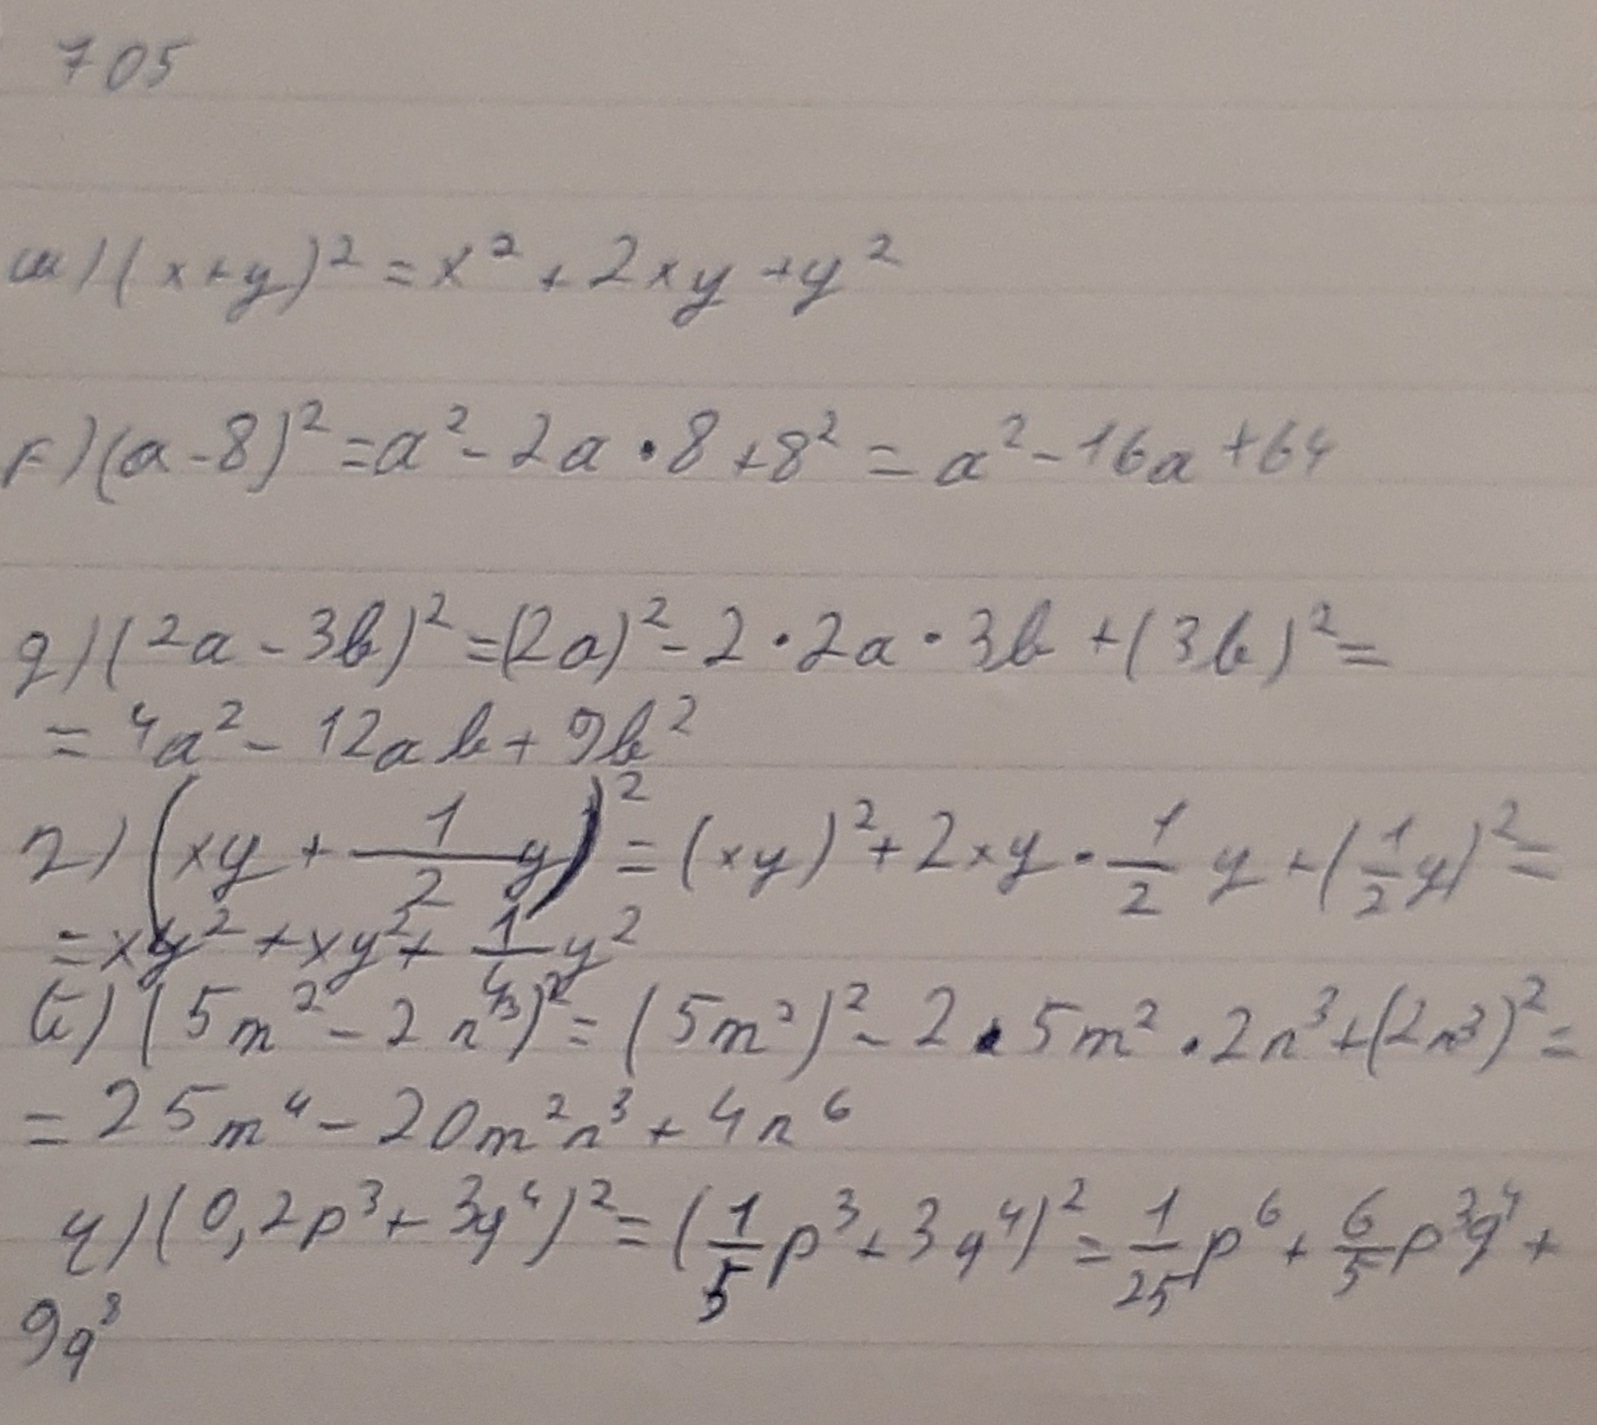 705
ա) (x+y)² = x² + 2xy + y²
բ) (a - 8)² = a² - 2a · 8 + 8² = a² - 16a + 64
գ) (2a - 3b)² = (2a)² - 2 · 2a · 3b + (3b)² =
= 4a² - 12ab + 9b²
դ) (xy + 1/2 y)² = (xy)² + 2xy · 1/2 y + (1/2 y)² =
= xy² + xy² + 1/4 y²
ե) (5m² - 2n³)² = (5m²)² - 2 · 5m² · 2n³ + (2n³)² =
= 25m⁴ - 20m²n³ + 4n⁶
զ) (0,2p³ + 3q⁴)² = (1/5 p³ + 3q⁴)² = 1/25 p⁶ + 6/5 p³q⁴ +
9q⁸